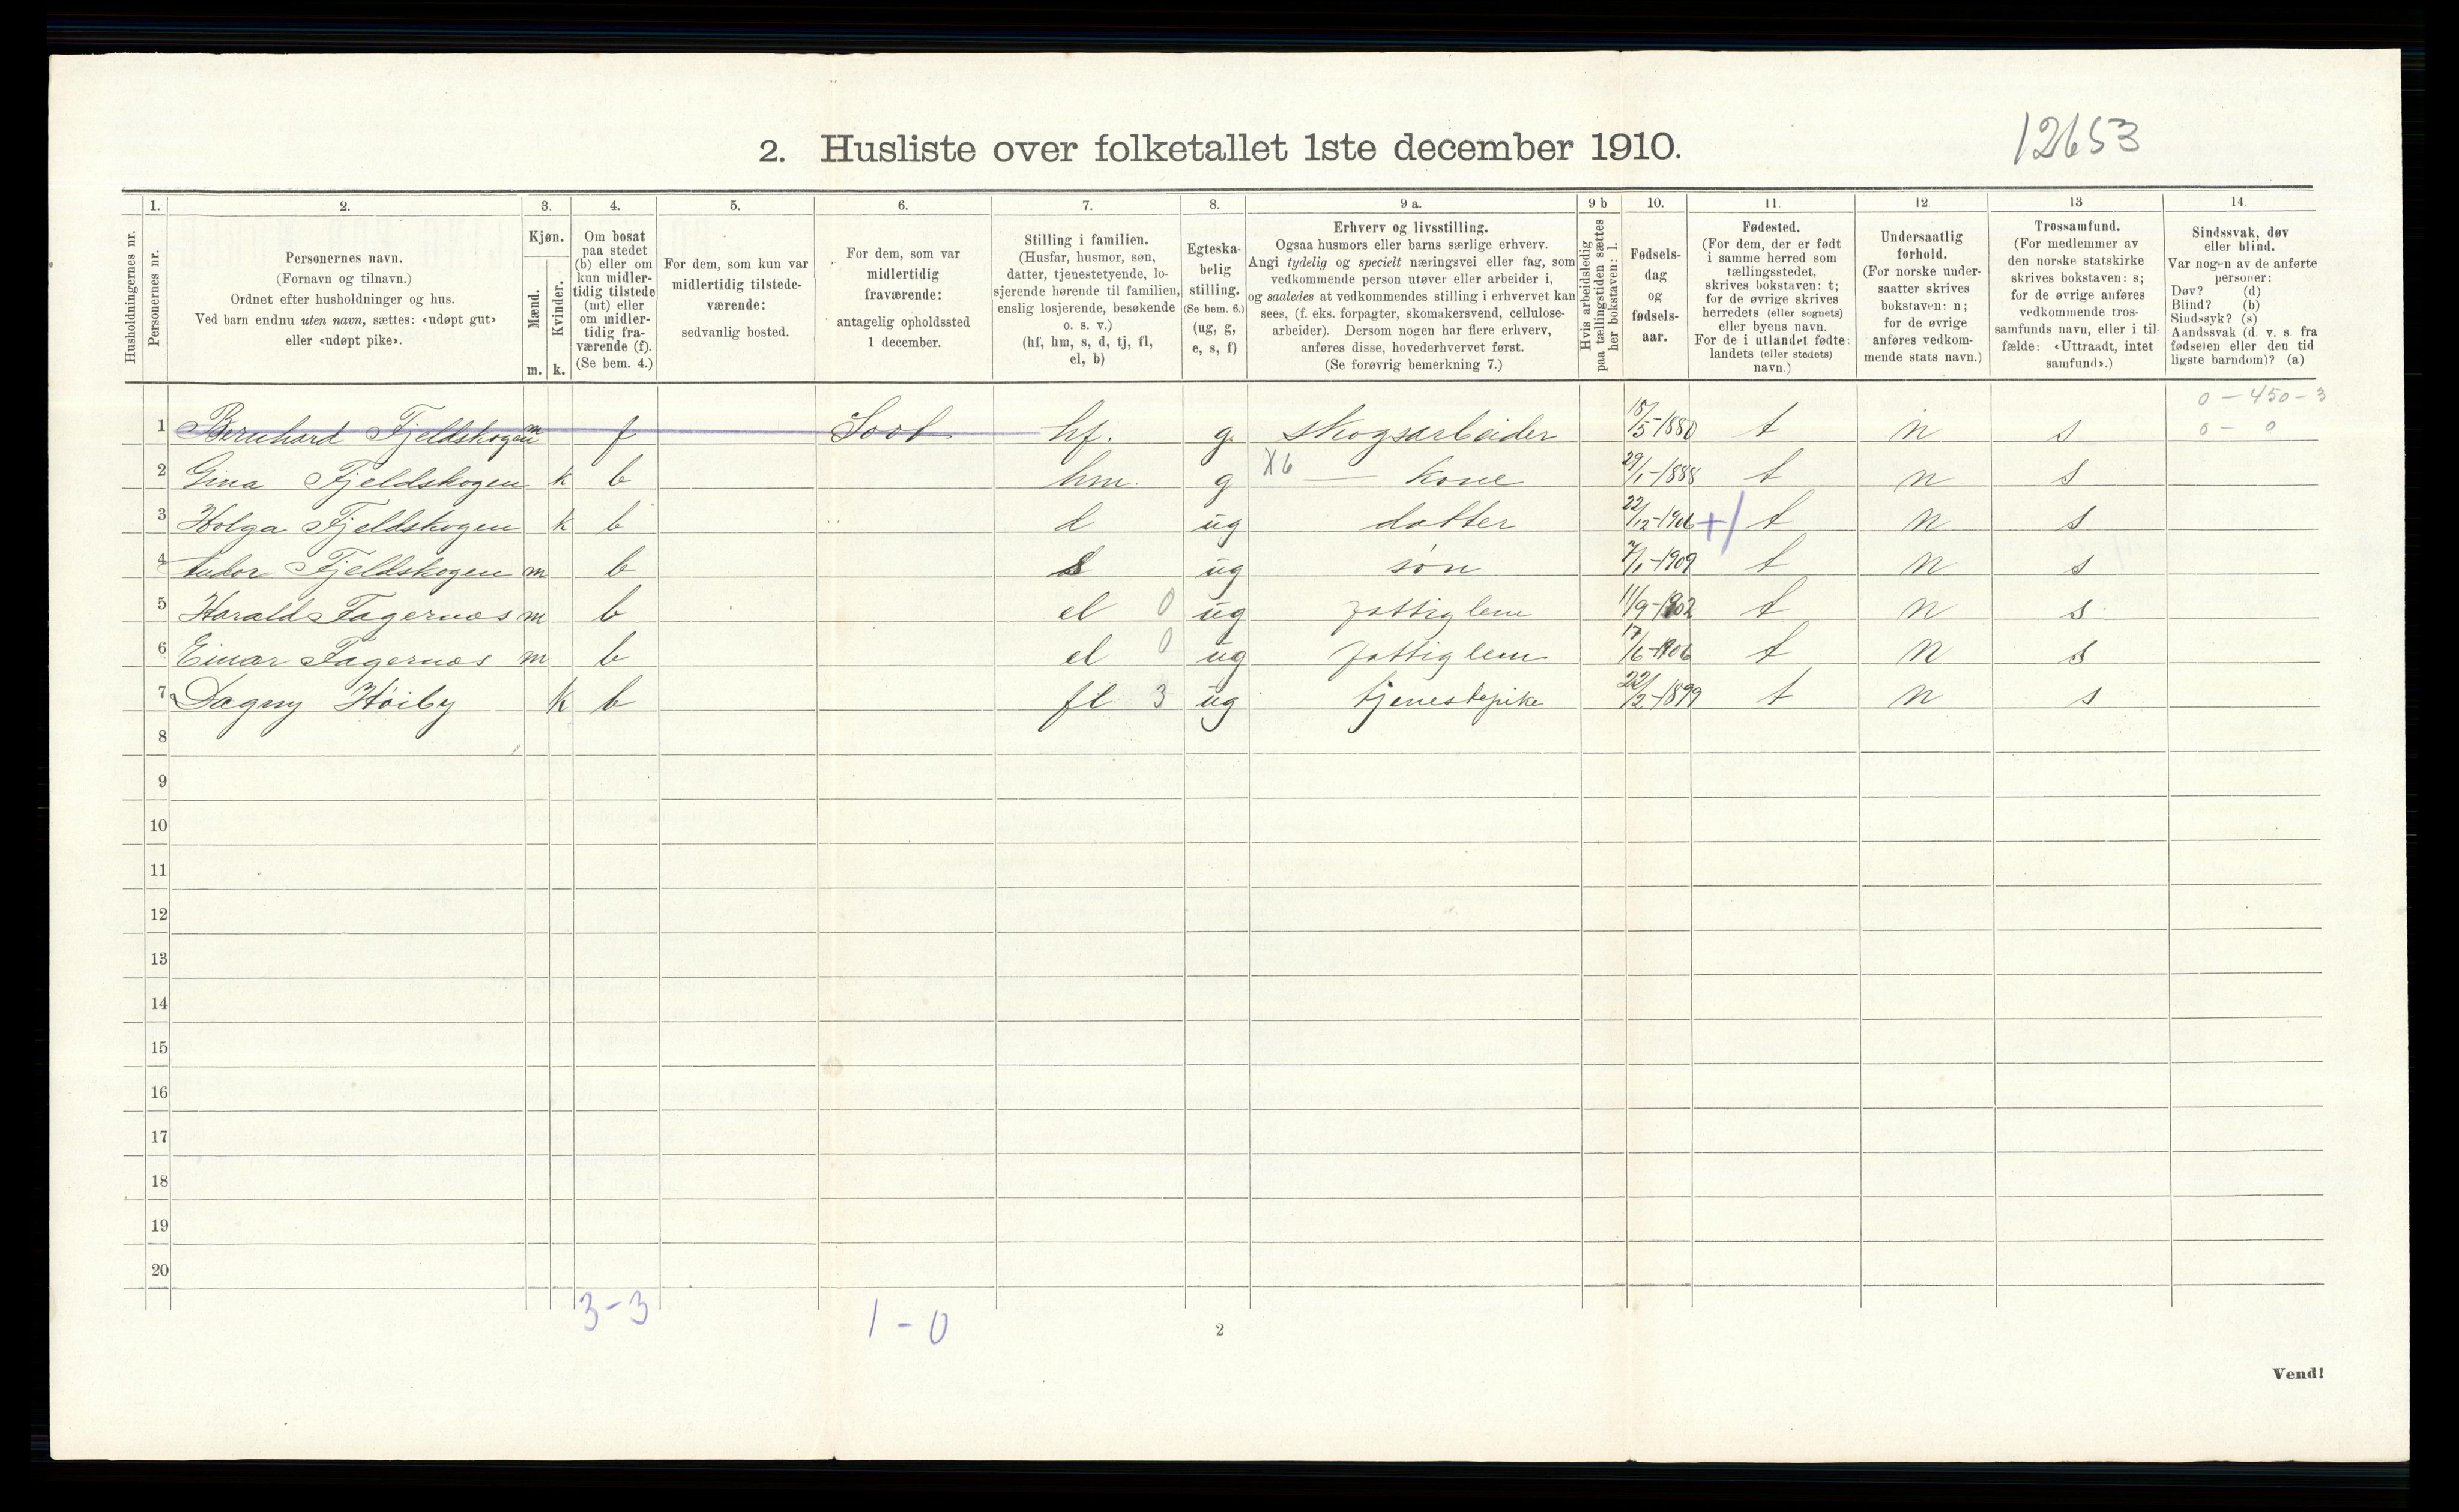 12653
2. Husliste over folketallet 1ste december 1910.
1. 2. 3. 4. 5. 6. 7. 8. 9 a. 9 b 10. 11. 12. 13 14.
Husholdningernes nr.
Personernes nr.
Personernes navn.
(Fornavn og tilnavn.)
Ordnet efter husholdninger og hus.
Ved barn endnu uten navn, sættes: «udøpt gut»
eller «udøpt pike».
Kjøn.
Mænd.
Kvinder.
m. k.
Om bosat
paa stedet
(b) eller om
kun midler-
tidig tilstede
(mt) eller
om midler-
tidig fra-
værende (f).
(Se bem. 4.)
For dem, som kun var
midlertidig tilstede-
værende:
sedvanlig bosted.
For dem, som var
midlertidig
fraværende:
antagelig opholdssted
1 december.
Stilling i familien.
(Husfar, husmor, søn,
datter, tjenestetyende, lo-
sjerende hørende til familien,
enslig losjerende, besøkende
o. s. v.)
(hf, hm, s, d, tj, fl,
el, b)
Egteska-
belig
stilling.
(Se bem. 6.)
(ug, g,
e, s, f)
Erhverv og livsstilling.
Ogsaa husmors eller barns særlige erhverv.
Angi tydelig og specielt næringsvei eller fag, som
vedkommende person utøver eller arbeider i,
og saaledes at vedkommendes stilling i erhvervet kan
sees, (f. eks. forpagter, skomakersvend, cellulose-
arbeider). Dersom nogen har flere erhverv,
anføres disse, hovederhvervet først.
(Se forøvrig bemerkning 7.)
Hvis arbeidsledig
paa tællingstiden sættes
her bokstaven: l.
Fødsels-
dag
og
fødsels-
aar.
Fødested.
(For dem, der er født
i samme herred som
tællingsstedet,
skrives bokstaven: t;
for de øvrige skrives
herredets (eller sognets)
eller byens navn.
For de i utlandet fødte:
landets (eller stedets)
navn.)
Undersaatlig
forhold.
(For norske under-
saatter skrives
bokstaven: n;
for de øvrige
anføres vedkom-
mende stats navn.)
Trossamfund.
(For medlemmer av
den norske statskirke
skrives bokstaven: s;
for de øvrige anføres
vedkommende tros-
samfunds navn, eller i til-
fælde: «Uttraadt, intet
samfund».)
Sindssvak, døv
eller blind.
Var nogen av de anførte
personer:
Døv? (d)
Blind? (b)
Sindssyk? (s)
Aandssvak (d. v. s. fra
fødselen eller den tid
ligste barndom)? (a)
0 - 450 - 3
1 Bernhard Fjeldskogen m f Soot hf. g. skogsarbeider 15/5-1880 t n s 0 - 0
2 Gina Fjeldskogen k b hm. g X6 — kone 29/1-1888 t n s
3 Holga Fjeldskogen k b d ug datter 22/12-1906 +/ t n s
4 Fjeldskogen m b s ug søn 7/1-1909 t n s
5 Harald Fagernæs m b el 0 ug fattiglem 11/9-1902 t n s
6 Einar Fagernæs m b el 0 ug fattiglem 17/6-1906 t n s
7 Dagny Høiby k b fl 3 ug tjenestepike 22/2-1899 t n s
8
9
10
11
12
13
14
15
16
17
18
19
20
3-3
1-0
2
Vend!